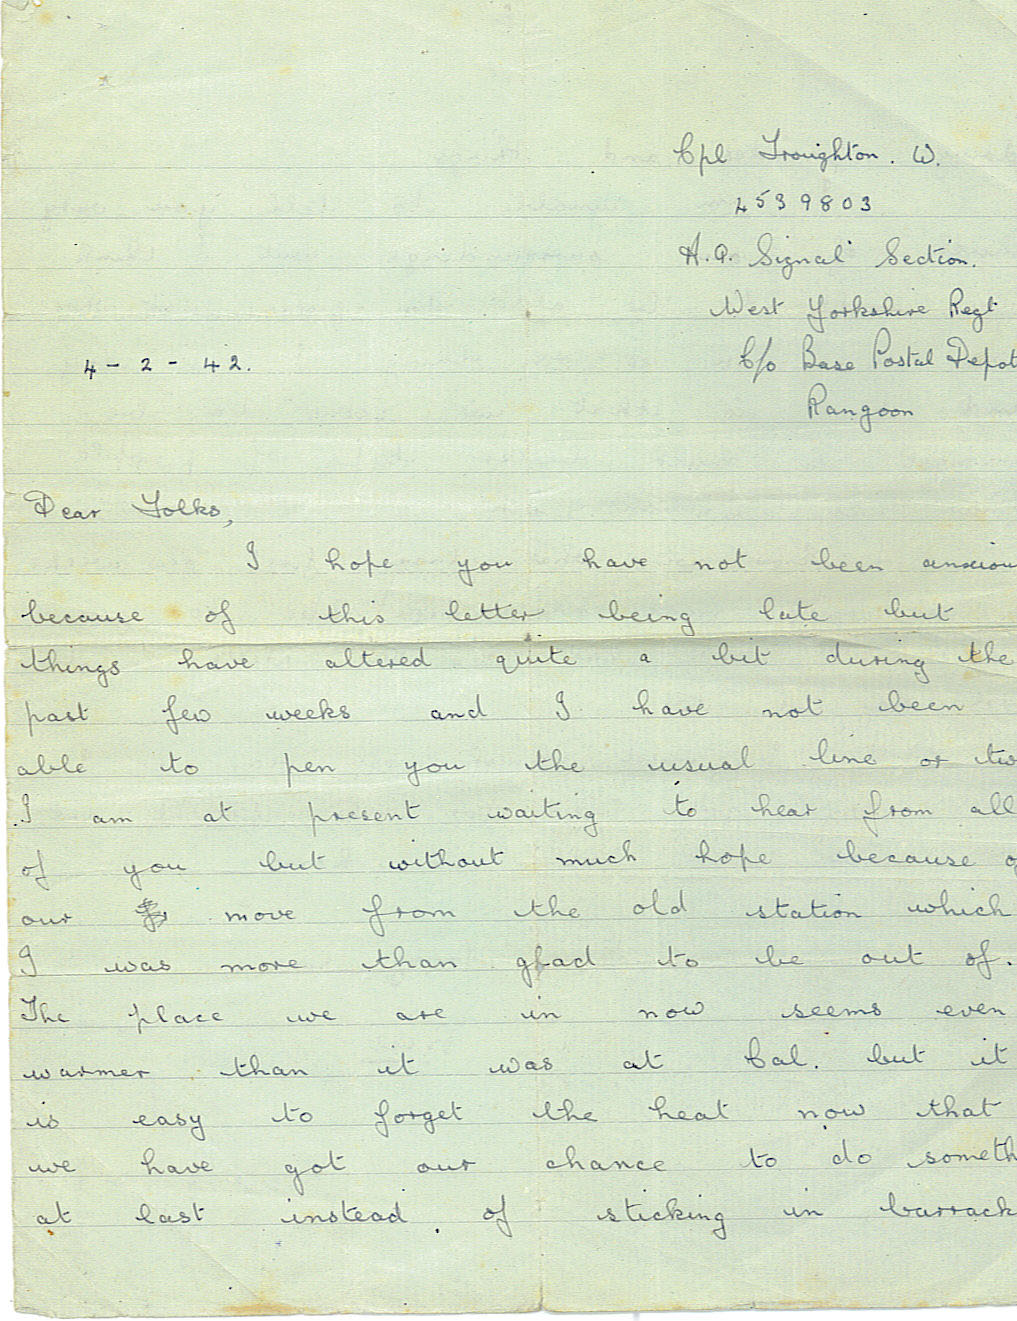 Cpl Troughton. W.
4539803
H.Q. Signal Section.
West Yorkshire Regt
4 - 2 - 42.
C/o Base Postal Depot
Rangoon
Dear Folks,
I hope you have not been anxiou
because of this letter being late but
things have altered quite a bit during the
past few weeks and I have not been
able to pen you the usual line or tw
I am at present waiting to hear from all
of you but without much hope because o
our move from the old station which
I was more than glad to be out of.
The place we are in now seems even
warmer than it was at Cal. but it
is easy to forget the heat now that
we have got our chance to do someth
at last instead of sticking in barrack